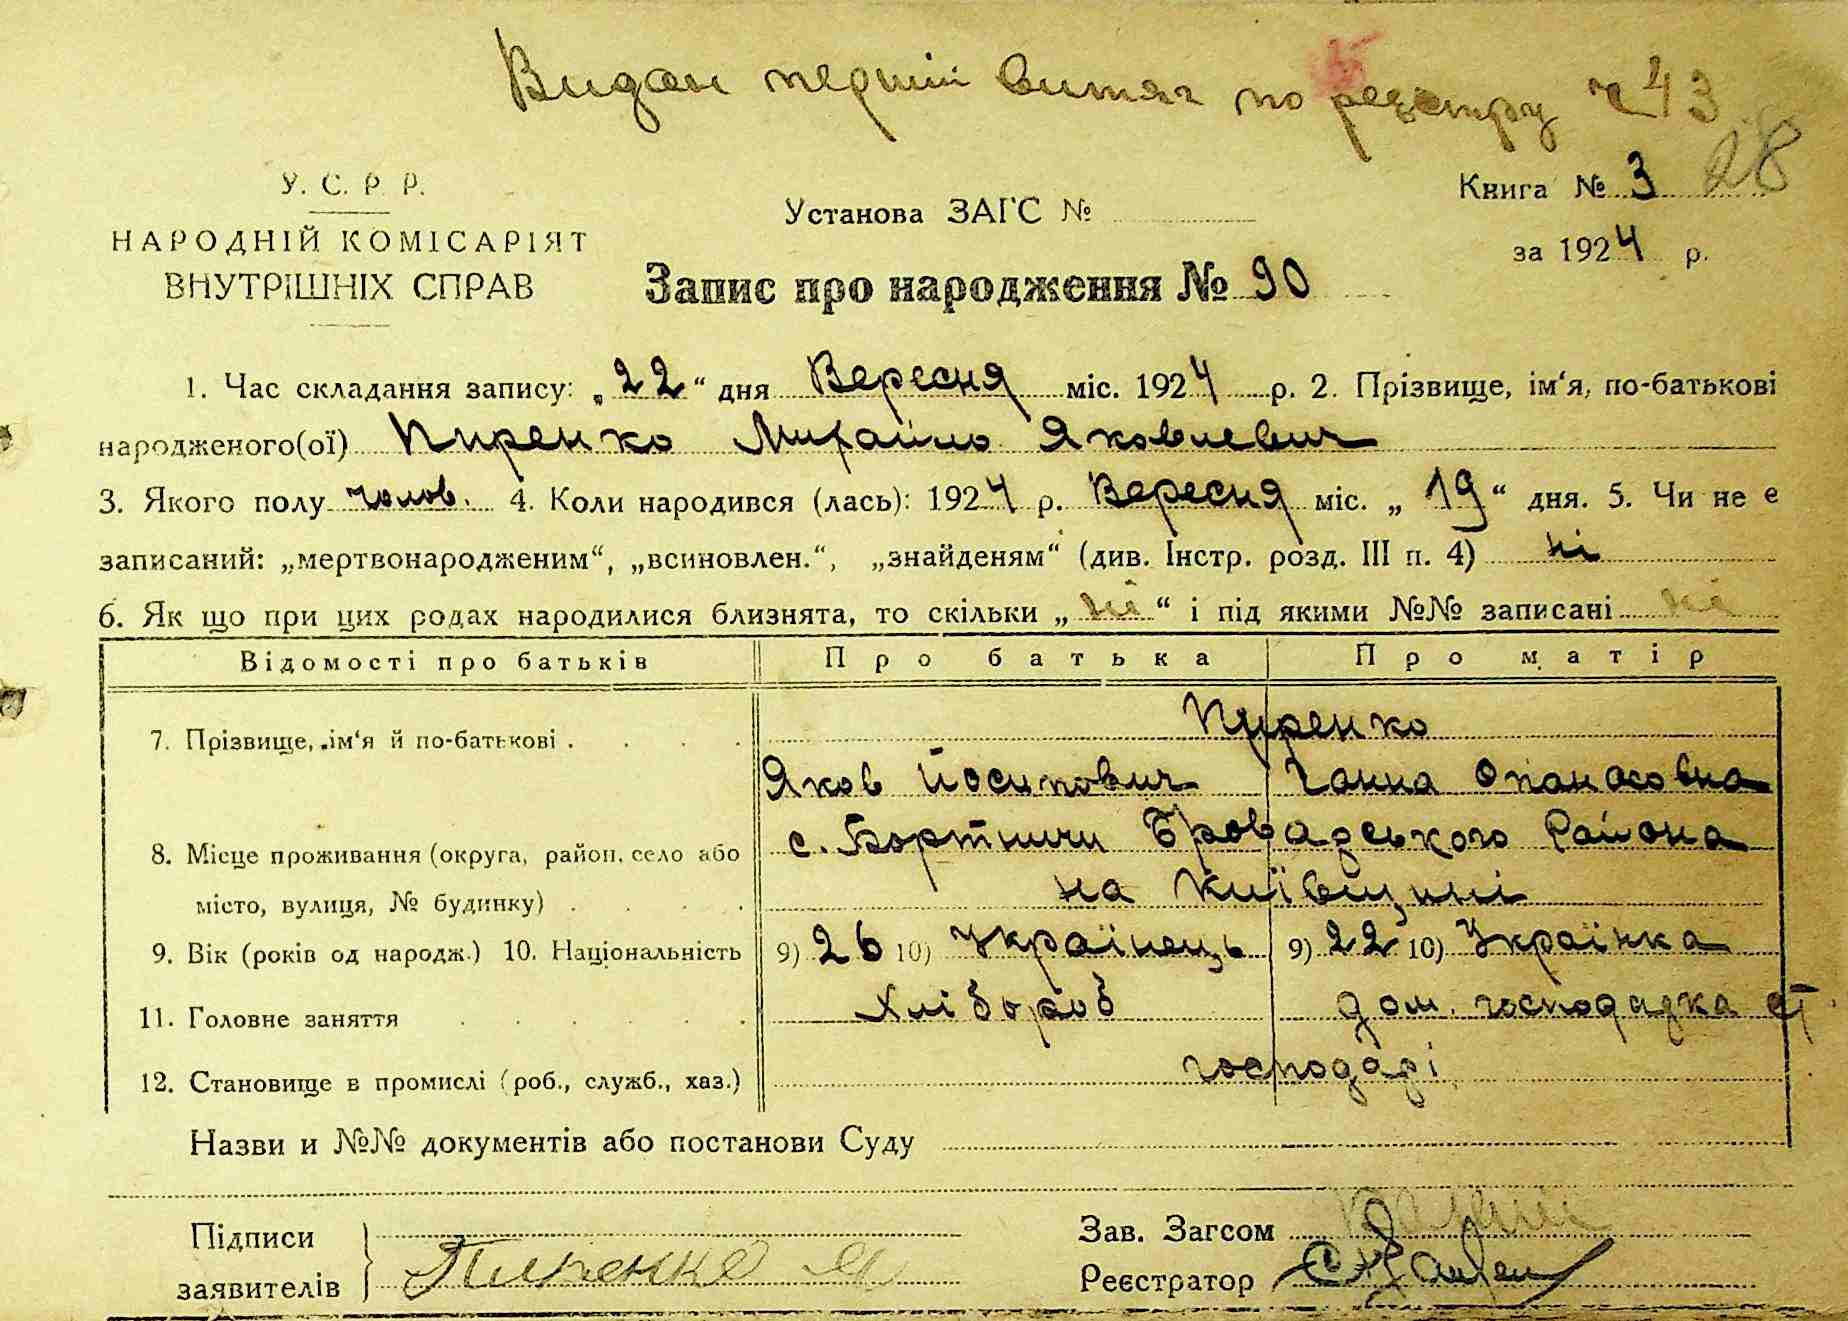 Видан перший витяг по реєстру ч 43
28
У. С. Р. Р.
НАРОДНІЙ КОМІСАРІЯТ
ВНУТРІШНІХ СПРАВ
Установа ЗАГС №
Запис про народження № 90
Книга № 3
за 1924 р.
1. Час складання запису: „22“ дня Вересня міс. 1924 р. 2. Прізвище, ім‘я, по-батькові
народженого(ої) Пиренко Михайло Яковлевич
3. Якого полу чолов. 4. Коли народився (лась): 1924 р. Вересня міс. „19“ дня. 5. Чи не є
записаний: „мертвонародженим“, „всиновлен.“, „знайденям“ (див. Інстр. розд. III п. 4) ні
6. Як що при цих родах народилися близнята, то скільки „ні“ і під якими №№ записані ні
Відомості про батьків Про батька Про матір
7. Прізвище, ім‘я й по-батькові Пиренко
Яков Йосипович Ганна Опанасовна
8. Місце проживання (округа, район, село або с. Бортничи Броварського Района
місто, вулиця, № будинку) на Київщині
9. Вік (років од народж.) 10. Національність 9) 26 10) Українець 9) 22 10) Українка
11. Головне заняття Хлібороб дом. господарка
12. Становище в промислі (роб., служб., хаз.) господарі
Назви и №№ документів або постанови Суду
Підписи
заявителів Пиренко Я
Зав. Загсом
Реєстратор